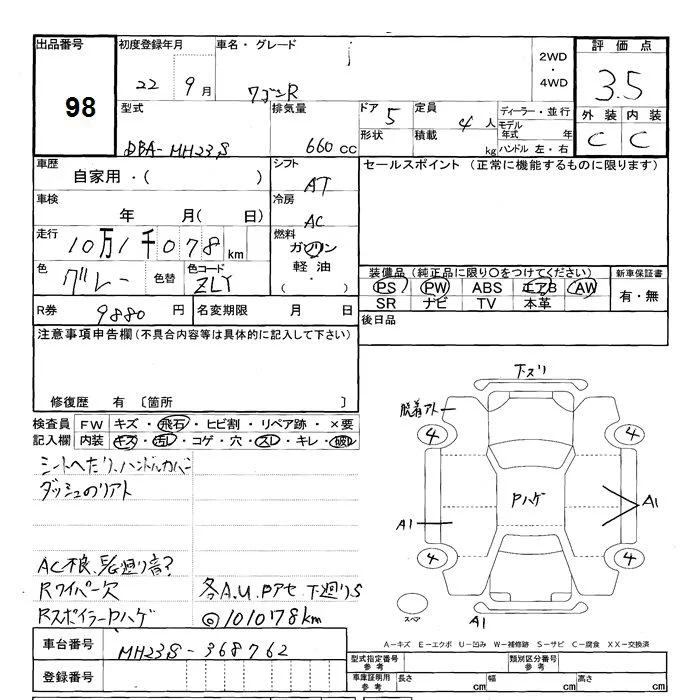 出品番号
98
初度登録年月
22 9月
車名・グレード
ワゴンR
2WD
・
4WD
評価点
3.5
外装 内装
C C
型式
DBA-MH23S
排気量
660cc
ドア 5
形状
定員 4人
積載 kg
ディーラー・並行
モデル
年式 年
ハンドル 左・右
車歴
自家用・( )
シフト
AT
車検
年 月( 日)
冷房
AC
走行
10万1千078km
燃料
ガソリン
軽油・
( )
色
グレー
色替
色コード
ZLY
R券 9880円
名変期限 月 日
セールスポイント (正常に機能するものに限ります)
装備品(純正品に限り○をつけてください)
PS PW ABS エアB AW
SR ナビ TV 本革
新車保証書
有・無
後日品
注意事項申告欄(不具合内容等は具体的に記入して下さい)
修復歴 有 〔箇所 〕
検査員
記入欄
FW キズ・飛石・ヒビ割・リペア跡・×要
内装 キズ・汚レ・コゲ・穴・スレ・キレ・破レ
シートへたり、ハンドルカバー
ダッシュのリアト
AC不良、 廻り音?
Rワイパー欠
各A.U.Pアセ 下廻りS
RスポイラーPハゲ
◎101078km
下スリ
脱着アト
4 4
Pハゲ
A1
A1
4 4
スペア
A1
A－キズ E－エクボ U－凹み W－補修跡 S－サビ C－腐食 XX－交換済
車台番号
MH23S-368762
登録番号
型式指定番号
参考
類別区分番号
参考
車庫証明用
参考
長さ cm
幅 cm
高さ cm